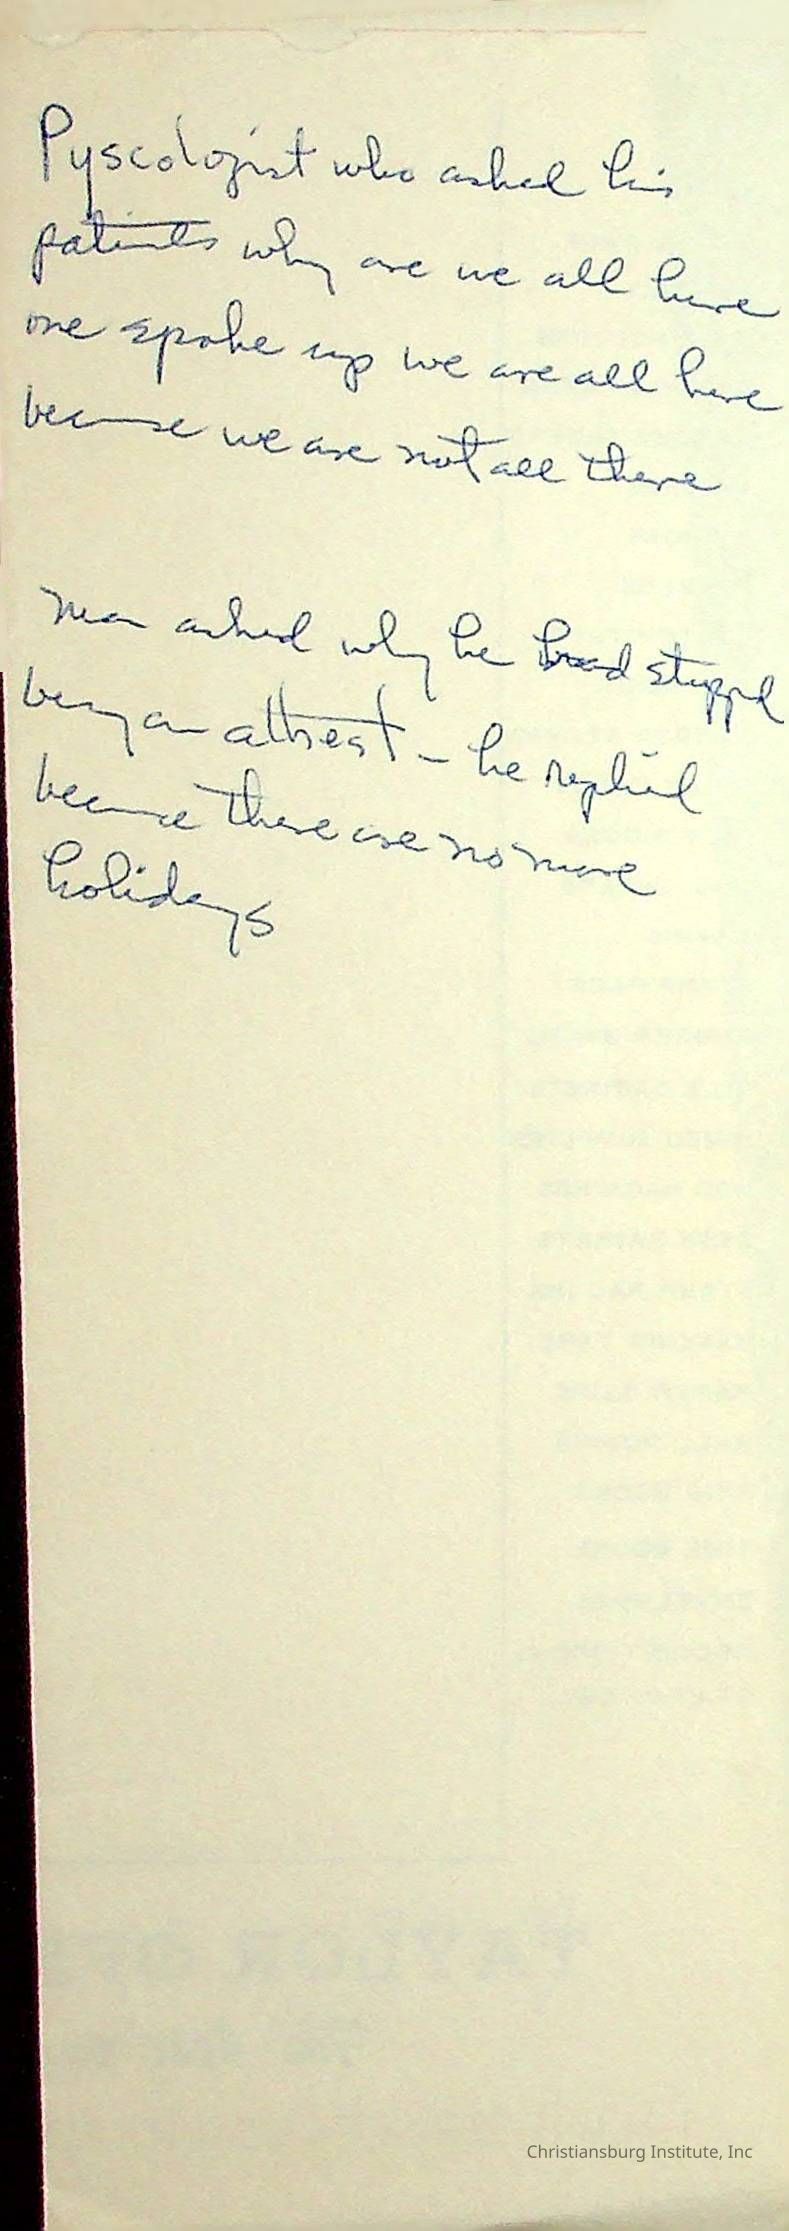 Pyscologist who asked his
patients why are we all here
one spoke up we are all here
because we are not all there
Man asked why he had stopped
being an athiest - he replied
because there are no more
holidays
Christiansburg Institute, Inc